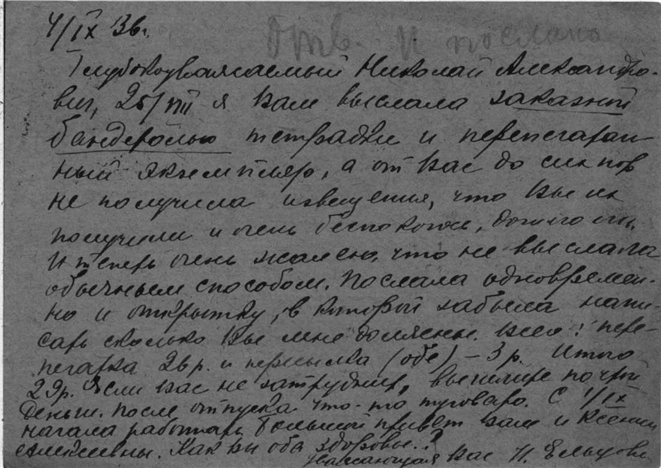 4/IX 36г.
Отв. и послано
Глубокоуважаемый Николай Александро-
вич, 25/VIII я Вам выслала заказной
бандеролью тетрадки и перепечатан-
ный экземпляр, а от Вас до сих пор
не получила извещения, что Вы их
получили и очень беспокоюсь,
И теперь очень жалею, что не выслала
обычным способом. Послала одновремен-
но и открытку, в которой забыла напи-
сать сколько Вы мне должны. Всего: пере-
печатка 26 р. и пересылка (обе) – 3 р. Итого
29р. Если Вас не затруднит, вышлите почтой
деньги. После отпуска что-то туговато. С 1/IX
начала работать. Большой привет Вам и Ксении
Как Вы оба здоровы?
Уважающая Вас Н. Ельцова